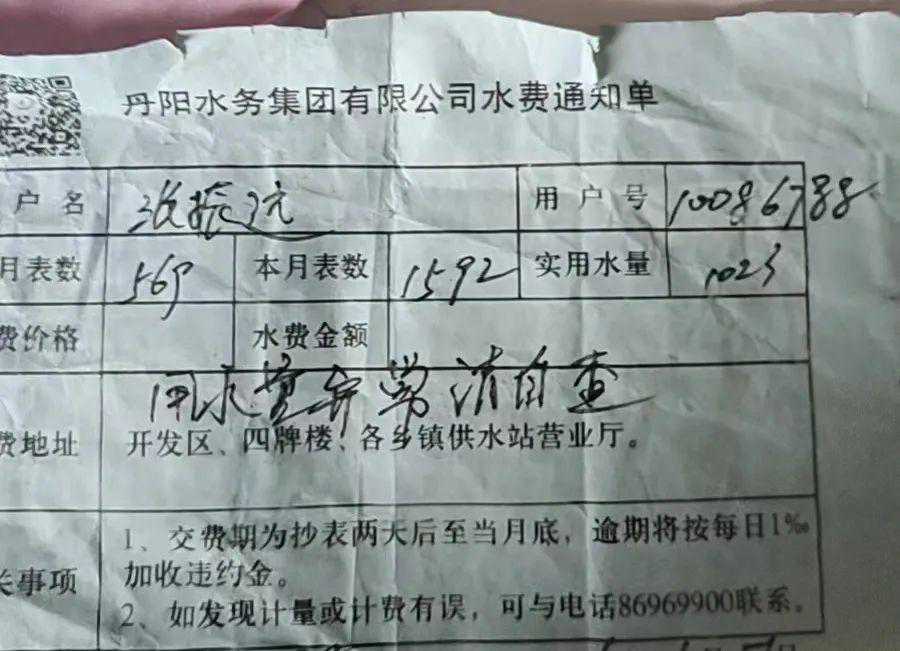 丹阳水务集团有限公司水费通知单
户名 张振远 用户号 10086788
月表数 569 本月表数 1592 实用水量 1023
费价格 水费金额
用水量异常请自查
费地址 开发区、四牌楼、各乡镇供水站营业厅。
1、交费期为抄表两天后至当月底，逾期将按每日1‰
关事项 加收违约金。
2、如发现计量或计费有误，可与电话86969900联系。